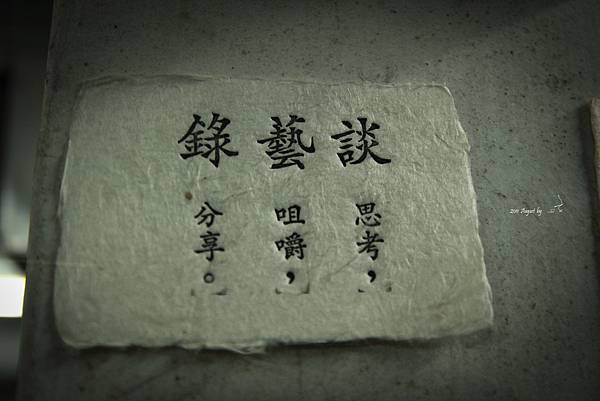 談藝錄
思考，
咀嚼，
分享。
2011 August by